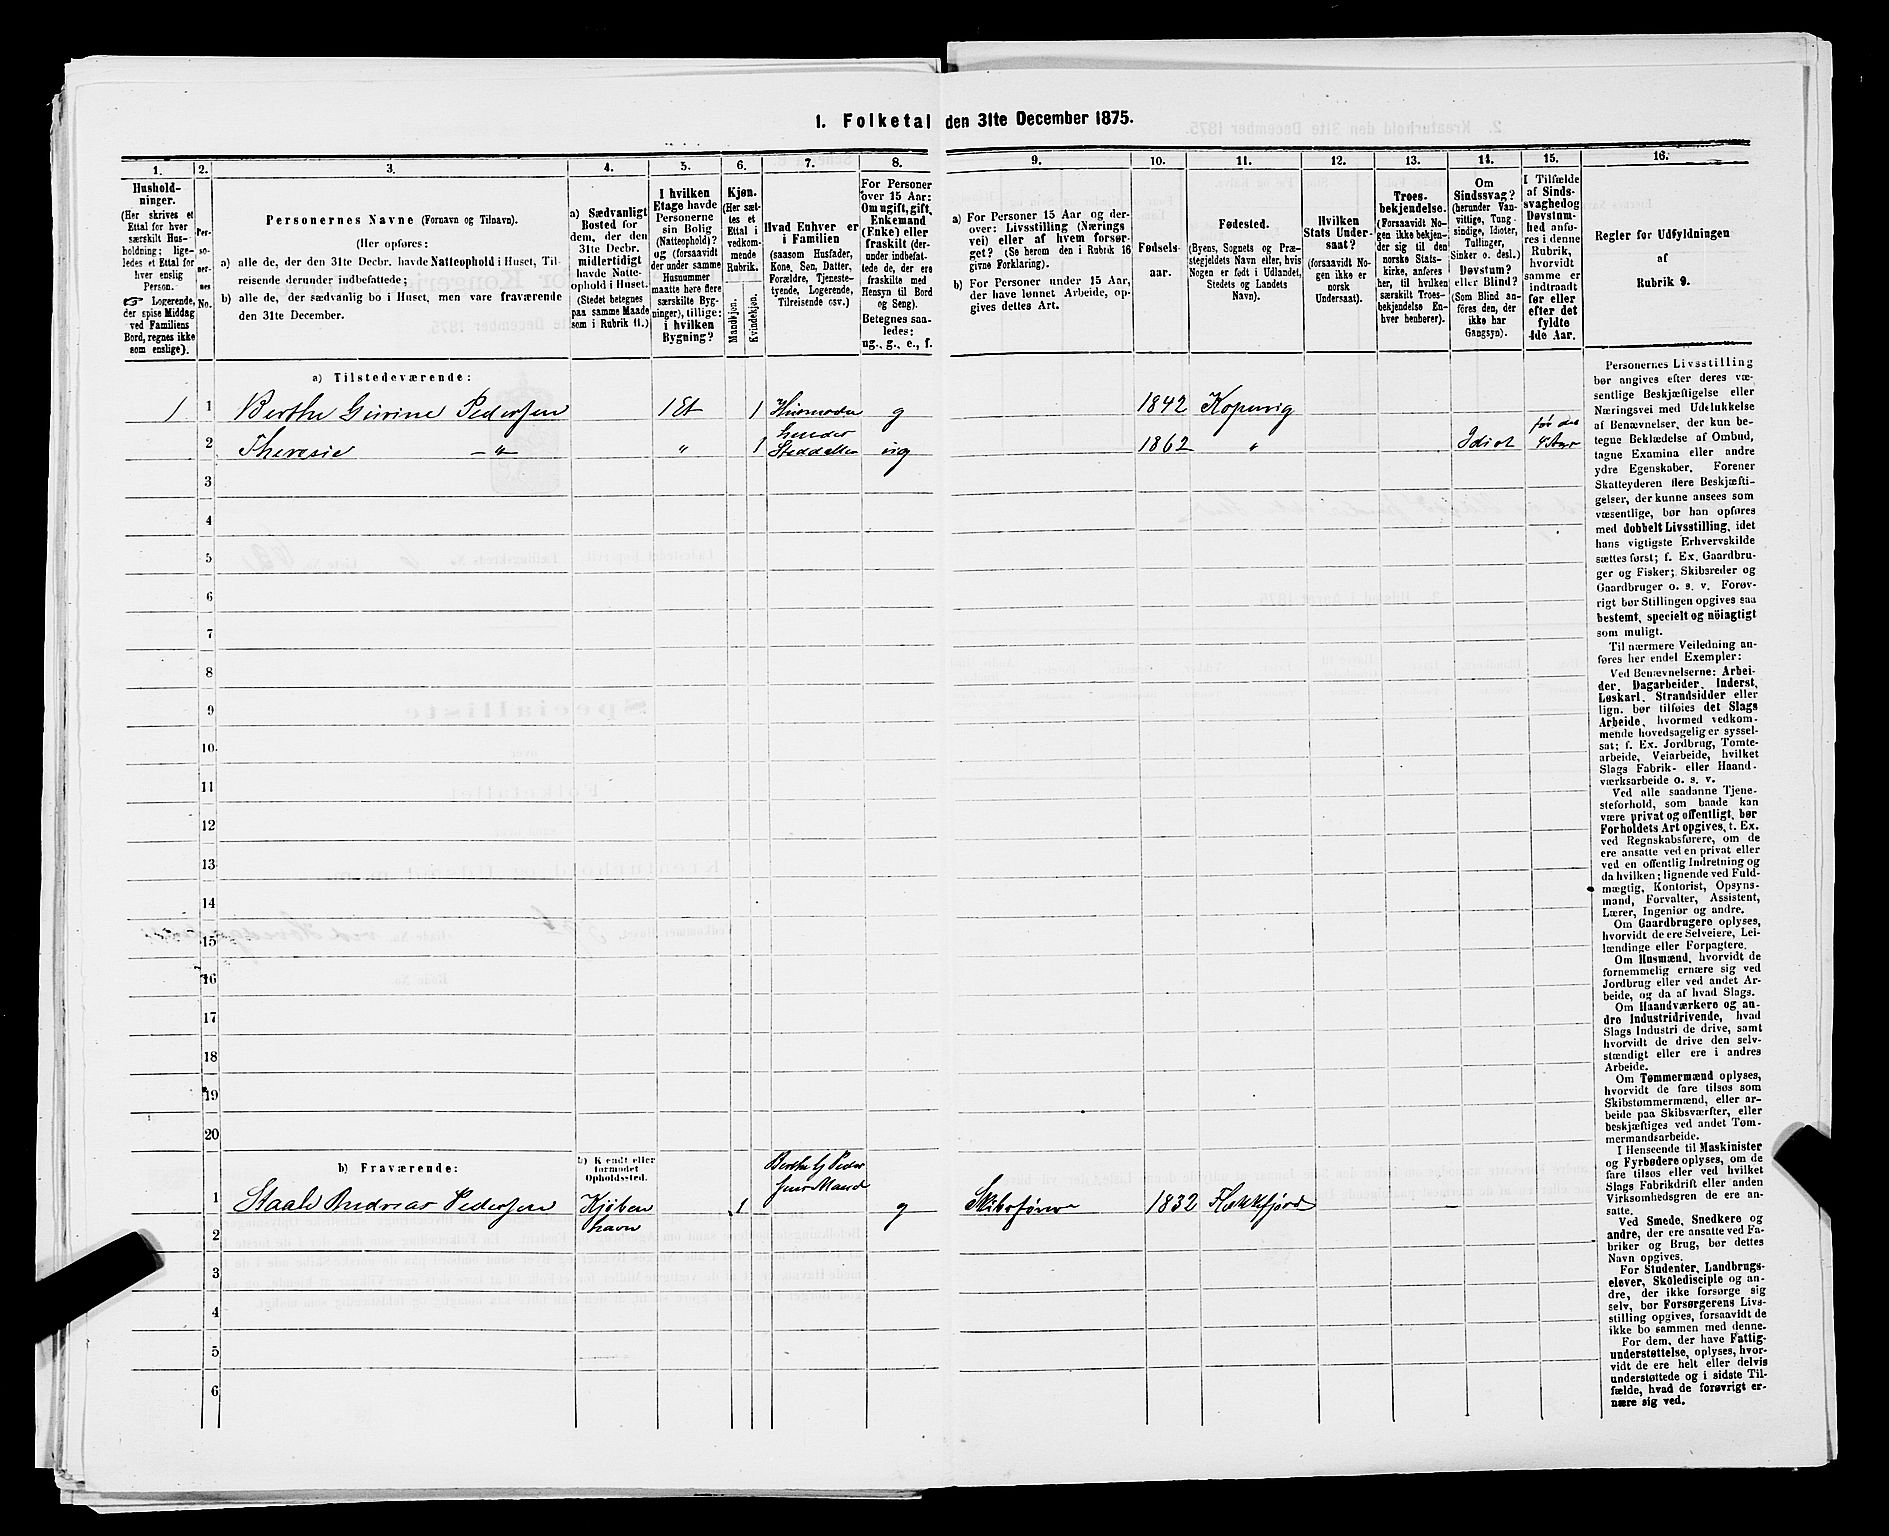 1. Folketal den 31te December 1875.
1. 2. 3. 4. 5. 6. 7. 8. 9. 10. 11. 12. 13. 14. 15. 16.
Hushold-
ninger.
(Her skrives et
Ettal for hver
særskilt Hus-
holdning; lige-
ledes et Ettal for
hver enslig
Person.
☞ Logerende,
der spise Middag
ved Familiens
Bord, regnes ikke
som enslige).
Per-
so-
ner-
nes
No.
Personernes Navne (Fornavn og Tilnavn).
(Her opføres:
a) alle de, der den 31te Decbr. havde Natteophold i Huset, Til-
reisende derunder indbefattede;
b) alle de, der sædvanlig bo i Huset, men vare fraværende
den 31te December.
a) Sædvanligt
Bosted for
dem, der den
31te Decbr.
midlertidigt
havde Natte-
ophold i Huset.
(Stedet betegnes
paa samme Maade
som i Rubrik 11.)
I hvilken
Etage havde
Personerne
sin Bolig
(Natteophold)?
og (forsaavidt
der under samme
Husnummer
maatte høre flere
særskilte Byg-
ninger), tillige:
i hvilken
Bygning?
Kjøn.
(Her sæt-
tes et
Ettal i
vedkom-
mende
Rubrik.
Mandkjøn.
Kvindekjøn.
Hvad Enhver er
i Familien
(saasom Husfader,
Kone, Søn, Datter,
Forældre, Tjeneste-
tyende, Logerende,
Tilreisende csv.)
For Personer
over 15 Aar:
Om ugift, gift,
Enkemand
(Enke) eller
fraskilt (der-
under indbefat-
tede de, der ere
fraskilte med
Hensyn til Bord
og Seng).
Betegnes saa-
ledes:
ug., g., e., f.
a) For Personer 15 Aar og der-
over: Livsstilling (Nærings
vei) eller af hvem forsør-
get? (Se herom den i Rubrik 16
givne Forklaring).
b) For Personer under 15 Aar,
der have lønnet Arbeide, op-
gives dettes Art.
Fødsels-
aar.
Fødested.
(Byens, Sognets og Præ-
stegjeldets Navn eller, hvis
Nogen er født i Udlandet,
Stedets og Landets
Navn).
Hvilken
Stats Under-
saat?
(forsaavidt No-
gen ikke er
norsk
Undersaat).
Troes-
bekjendelse.
(Forsaavidt No-
gen ikke bekjen-
der sig til den
norske Stats-
kirke, anføres
her, til hvilken
særskilt Troes-
bekjendelse En-
hver henhører).
Om
Sindssvag?
(herunder Van-
vittige, Tung-
sindige, Idioter,
Tullinger,
Sinker o. desl.)
Døvstum?
eller Blind?
(Som Blind an-
føres den, der
ikke har
Gangsyn).
I Tilfælde
af Sinds-
svaghed og
Døvstum-
hed anfø-
res i denne
Rubrik,
hvorvidt
samme er
indtraadt
før eller
efter det
fyldte
4de Aar.
Regler for Udfyldningen
af
Rubrik 9.
a) Tilstedeværende:
1 1 Berthe Gurine Pedersen 1 Et 1 Husmoder g 1842 Kopervig
2 Theresie " " 1 hendes Steddatter ug 1862 " Idiot før det 4 Aar
3
4
5
6
7
8
9
10
11
12
13
14
15
16
17
18
19
20
b) Fraværende:
b) Kjendt eller
formodet
Opholdssted.
1 Staale Andreas Pedersen Kjøben havn 1 Berthe G Peder sens Mand g Skibsfører 1832 Flekkefjord
2
3
4
5
6
Personernes Livsstilling
bør angives efter deres væ-
sentlige Beskjæftigelse eller
Næringsvei med Udelukkelse
af Benævnelser, der kun be-
tegne Beklædelse af Ombud,
tagne Examina eller andre
ydre Egenskaber. Forener
Skatteyderen flere Beskjæfti-
gelser, der kunne ansees som
væsentlige, bør han opføres
med dobbelt Livsstilling, idet
hans vigtigste Erhvervskilde
sættes først; f. Ex. Gaardbru-
ger og Fisker; Skibsreder og
Gaardbruger o. s. v. Forøv-
rigt bør Stillingen opgives saa
bestemt, specielt og nöiagtigt
som muligt.
Til nærmere Veiledning an-
føres her endel Exempler:
Ved Benævnelserne: Arbei-
der, Dagarbeider, Inderst,
Løskarl, Strandsidder eller
lign. bør tilføies det Slags
Arbeide, hvormed vedkom-
mende hovedsagelig er syssel-
sat; f. Ex. Jordbrug, Tomte-
arbeide, Veiarbeide, hvilket
Slags Fabrik- eller Haand-
værksarbeide o. s. v.
Ved alle saadanne Tjene-
steforhold, som baade kan
være privat og offentligt, bør
Forholdets Art opgives, t. Ex.
ved Regnskabsførere, om de
ere ansatte ved en privat eller
ved en offentlig Indretning og
da hvilken; lignende ved Fuld-
mægtig, Kontorist, Opsyns-
mand, Forvalter, Assistent,
Lærer, Ingeniør og andre.
Om Gaardbrugere oplyses,
hvorvidt de ere Selveiere, Lei-
lændinge eller Forpagtere.
Om Husmænd, hvorvidt de
fornemmelig ernære sig ved
Jordbrug eller ved andet Ar-
beide, og da af hvad Slags.
Om Haandværkere og an-
dre Industridrivende, hvad
Slags Industri de drive, samt
hvorvidt de drive den selv-
stændigt eller ere i andres
Arbeide.
Om Tømmermænd oplyses,
hvorvidt de fare tilsøs som
Skibstømmermænd, eller ar-
beide paa Skibsværfter, eller
beskjæftiges ved andet Tøm-
mermandsarbeide.
I Henseende til Maskinister
og Fyrbødere oplyses, om de
fare tilsøs eller ved hvilket
Slags Fabrikdrift eller anden
Virksomhedsgren de ere an-
satte.
Ved Smede, Snedkere og
andre, der ere ansatte ved Fa-
briker og Brug, bør dettes
Navn opgives.
For Studenter, Landbrugs-
elever, Skoledisciple og an-
dre, der ikke forsørge sig
selv, bør Forsørgerens Livs-
stilling opgives, forsaavidt de
ikke bo sammen med denne.
For dem, der have Fattig-
understøttelse, oplyses, hvor-
vidt de ere helt eller delvis
understøttede og i sidste Til-
fælde, hvad de forøvrigt er-
nære sig ved.